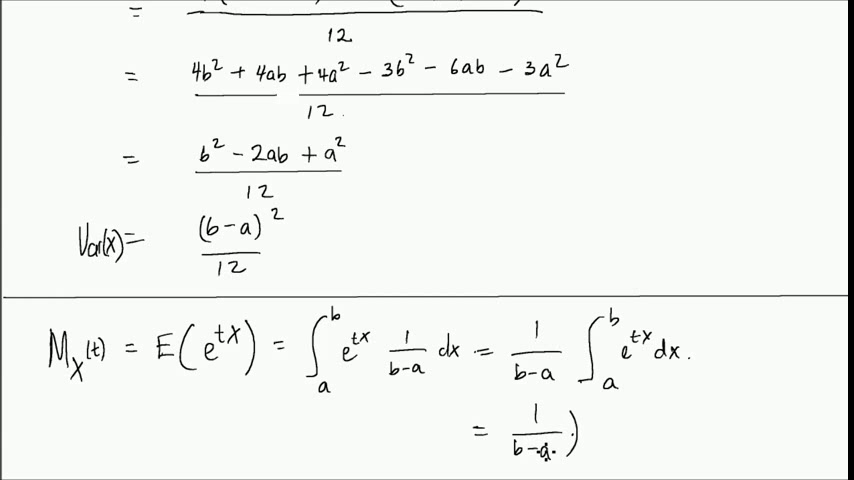 =
12
= 4b² + 4ab + 4a² − 3b² − 6ab − 3a²
12
= b² − 2ab + a²
12
Var(x) = (b−a)²
12
M_X(t) = E(e^{tX}) = ∫_a^b e^{tx} 1/(b−a) dx = 1/(b−a) ∫_a^b e^{tx} dx.
= 1/(b−a)